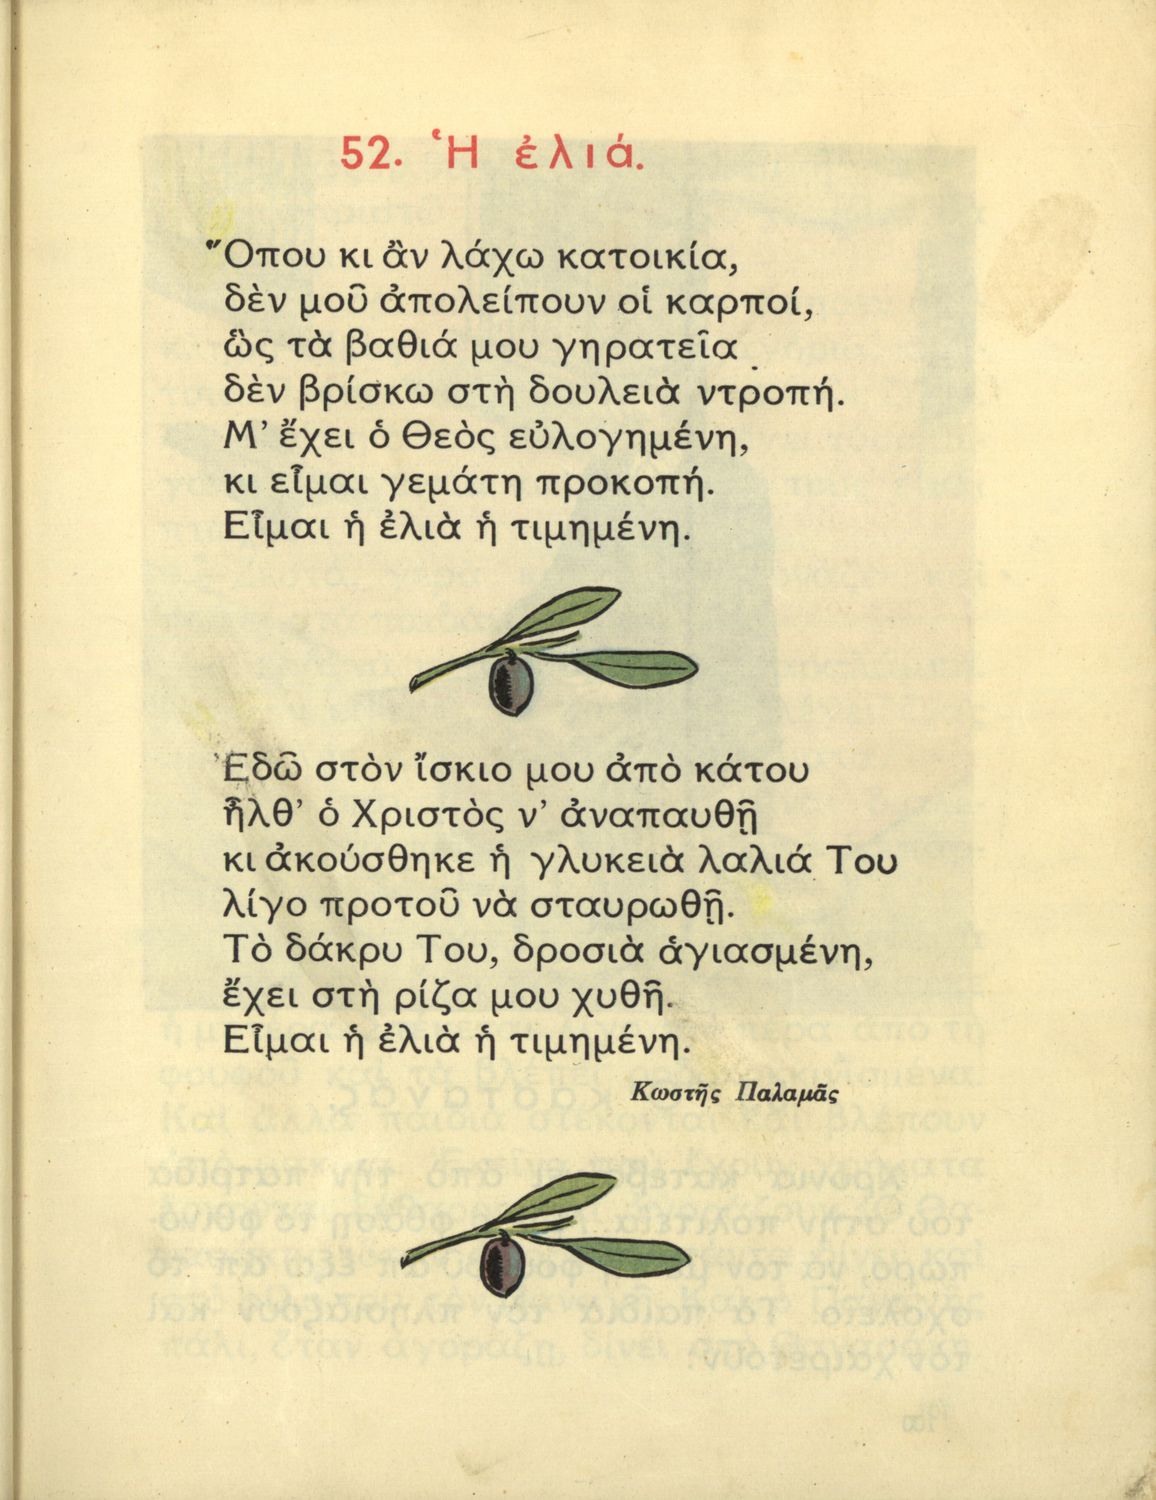 52. Ἡ ἐλιά.
Ὅπου κι ἂν λάχω κατοικία,
δὲν μοῦ ἀπολείπουν οἱ καρποί,
ὣς τὰ βαθιά μου γηρατεῖα
δὲν βρίσκω στὴ δουλειὰ ντροπή.
Μ᾿ ἔχει ὁ Θεὸς εὐλογημένη,
κι εἶμαι γεμάτη προκοπή.
Εἶμαι ἡ ἐλιὰ ἡ τιμημένη.
Ἐδῶ στὸν ἴσκιο μου ἀπὸ κάτου
ἦλθ᾿ ὁ Χριστὸς ν᾿ ἀναπαυθῇ
κι ἀκούσθηκε ἡ γλυκειὰ λαλιά Του
λίγο προτοῦ νὰ σταυρωθῇ.
Τὸ δάκρυ Του, δροσιὰ ἁγιασμένη,
ἔχει στὴ ρίζα μου χυθῆ.
Εἶμαι ἡ ἐλιὰ ἡ τιμημένη.
Κωστῆς Παλαμᾶς